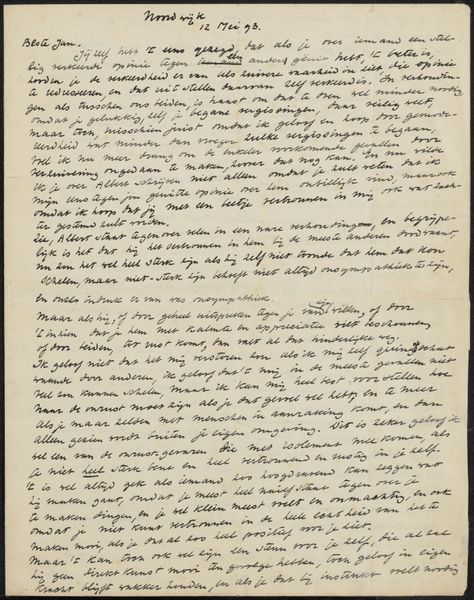 Noordwijk
12 Mei 93.
Beste Jan.
Jij zelf hebt 't eens gezegd, dat als je over iemand een stel-
lig verkeerde opinie tegen een ander geuit hebt, 't beter is,
zoodra je de verkeerdheid er van als zuivere waarheid inziet, die opinie
te redresseeren, en dat uitstellen daarvan zelf verkeerd is. In verhoudin-
gen als tusschen ons beiden, is haast om dat te doen wel minder noodig
omdat je gelukkig, zelf je begane vergissingen, daar veilig weet,
maar toch, misschien juist omdat ik geloof en hoop door gemoede-
leerdheid wat minder dan vroeger zulke vergissingen te begaan,
voel ik nu meer drang om de enkele voorkomende gevallen door
verhuizing ongedaan te maken, zoover dat nog kan. En nu wilde
ik je over Albert schrijven niet alleen omdat je zult weten dat ik
mijn eens tegen jou geuitte opinie over hem onbillijk vind, maar ook
omdat ik hoop dat jij met een beetje vertrouwen in mij ook wat zach-
ter gestemd zult worden.
Zie, Albert staat tegenover velen in een nare verhouding, en begrijpe-
lijk is dat hij het vertrouwen in hem bij de meeste anderen dood waant,
nu zou het wel heel sterk zijn als hij zelf niet toonde dat hem dat kon
schelen, maar niet-sterk zijn behoeft niet altijd onsympathiek te zijn,
en onze indruk er van was onsympathiek.
Maar als hij, of door geheel uitspreken tegen je van zijn willen, of door
't in hem dat je hem met kalmte en appreciatie weet beschouwen,
of door beiden, tot rust komt, dan valt al dat hinderlijke weg.
Ik geloof niet dat het mij verstoren zou als ik mij zelf geringschat
waande door anderen, ik geloof dat 't mij in de meeste gevallen niet
veel zou kunnen schelen, maar ik kan mij heel best voorstellen hoe
naar de onrust moet zijn als je dat gevoel wel hebt, en te meer
als je maar zelden met menschen in aanraking komt, en dan
alleen gezien wordt buiten je eigen omgeving. Dit is zeker geloof ik
wel een van de onrust-gevaren die met isolement mee komen, als
je niet heel sterk bent en heel vertrouwend en rustig in je zelf.
't is wel altijd gek als iemand zoo hoogdravend kan zeggen wat
hij maken gaat, omdat je meest heel naief staat tegen over je
te maken dingen, en je wel klein meest voelt en onmachtig, en ook
omdat je niet kunt vertrouwen in de heele echtheid van het te
maken mooi, als je dat al zoo heel positief voor je ziet.
Maar 't kan toch ook wel zijn een steun voor je zelf, die al zal
hij geen direkt kunst mooi ten gevolge hebben, toch geloof in eigen
kracht blijft wakker houden, en als je dat bij instinkt voelt noodig